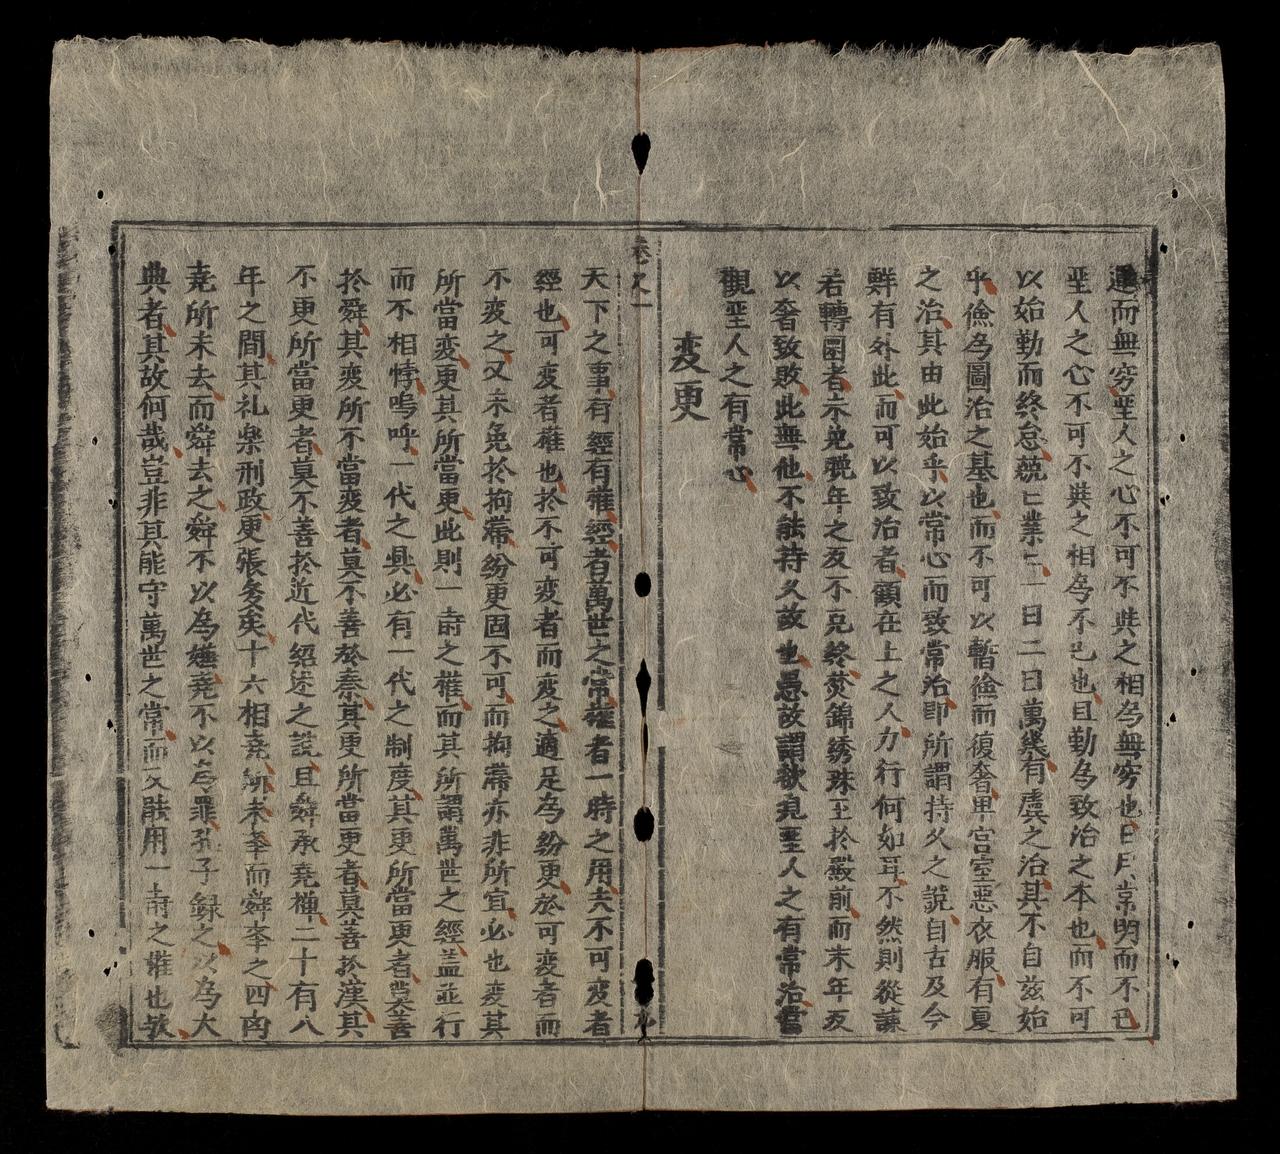 運而無穷𦤀人之心不可不與之相為無穷也日月常明而不已
𦤀人之心不可不與之相為不已也且勤為致治之本也而不可
以始勤而終怠兢〻業〻一日二日萬幾有虞之治其不自兹始
乎儉為圖治之基也而不可以暫儉而復奢卑宫室惡衣服有夏
之治其由此始乎以常心而致常治即所謂持久之說自古及今
鮮有外此而可以致治者顧在上之人力行何如耳不然則從諫
若轉圜者不免晚年之反不克終焚錦綉珠玉於殿前而末年反
以奢致敗此無他不能持久故也愚故謂欲見𦤀人之有常治當
觀𦤀人之有常心
变更
卷之一
天下之事有經有權經者萬世之常權者一時之用夫不可变者
經也可变者權也於不可变者而变之適足為紛更於可变者而
不变之又未免於拘滯紛更固不可而拘滯亦非所宜必也变其
所當变更其所當更此則一時之權而其所謂萬世之經盖並行
而不相悖嗚呼一代之興必有一代之制度其更所當更者莫善
於舜其变所不當变者莫不善於秦其更所當更者莫善於漢其
不更所當更者莫不善於近代紹述之說且舜承尭禅二十有八
年之間其礼樂刑政更張多矣十六相尭所未举而舜举之四凶
尭所未去而舜去之舜不以為嫌尭不以為罪孔子録之以為大
典者其故何哉豈非其能守萬世之常而又能用一時之權也欤